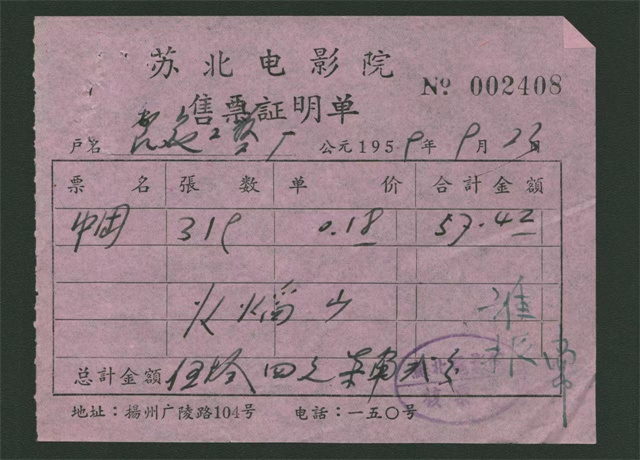 苏北电影院
№ 002408
售票証明单
戶名 工艺厂 公元1959年9月23日
票名 張数 单价 合計金額
中国 319 0.18 57.42
火焰山
准
总計金額 伍拾 元 角 分
地址：揚州广陵路104号 电話：一五〇号